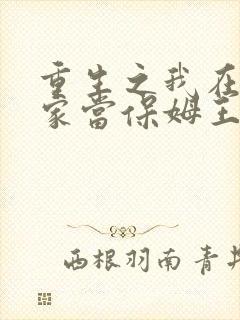 重生之我在
家當保姆王
西根羽南青